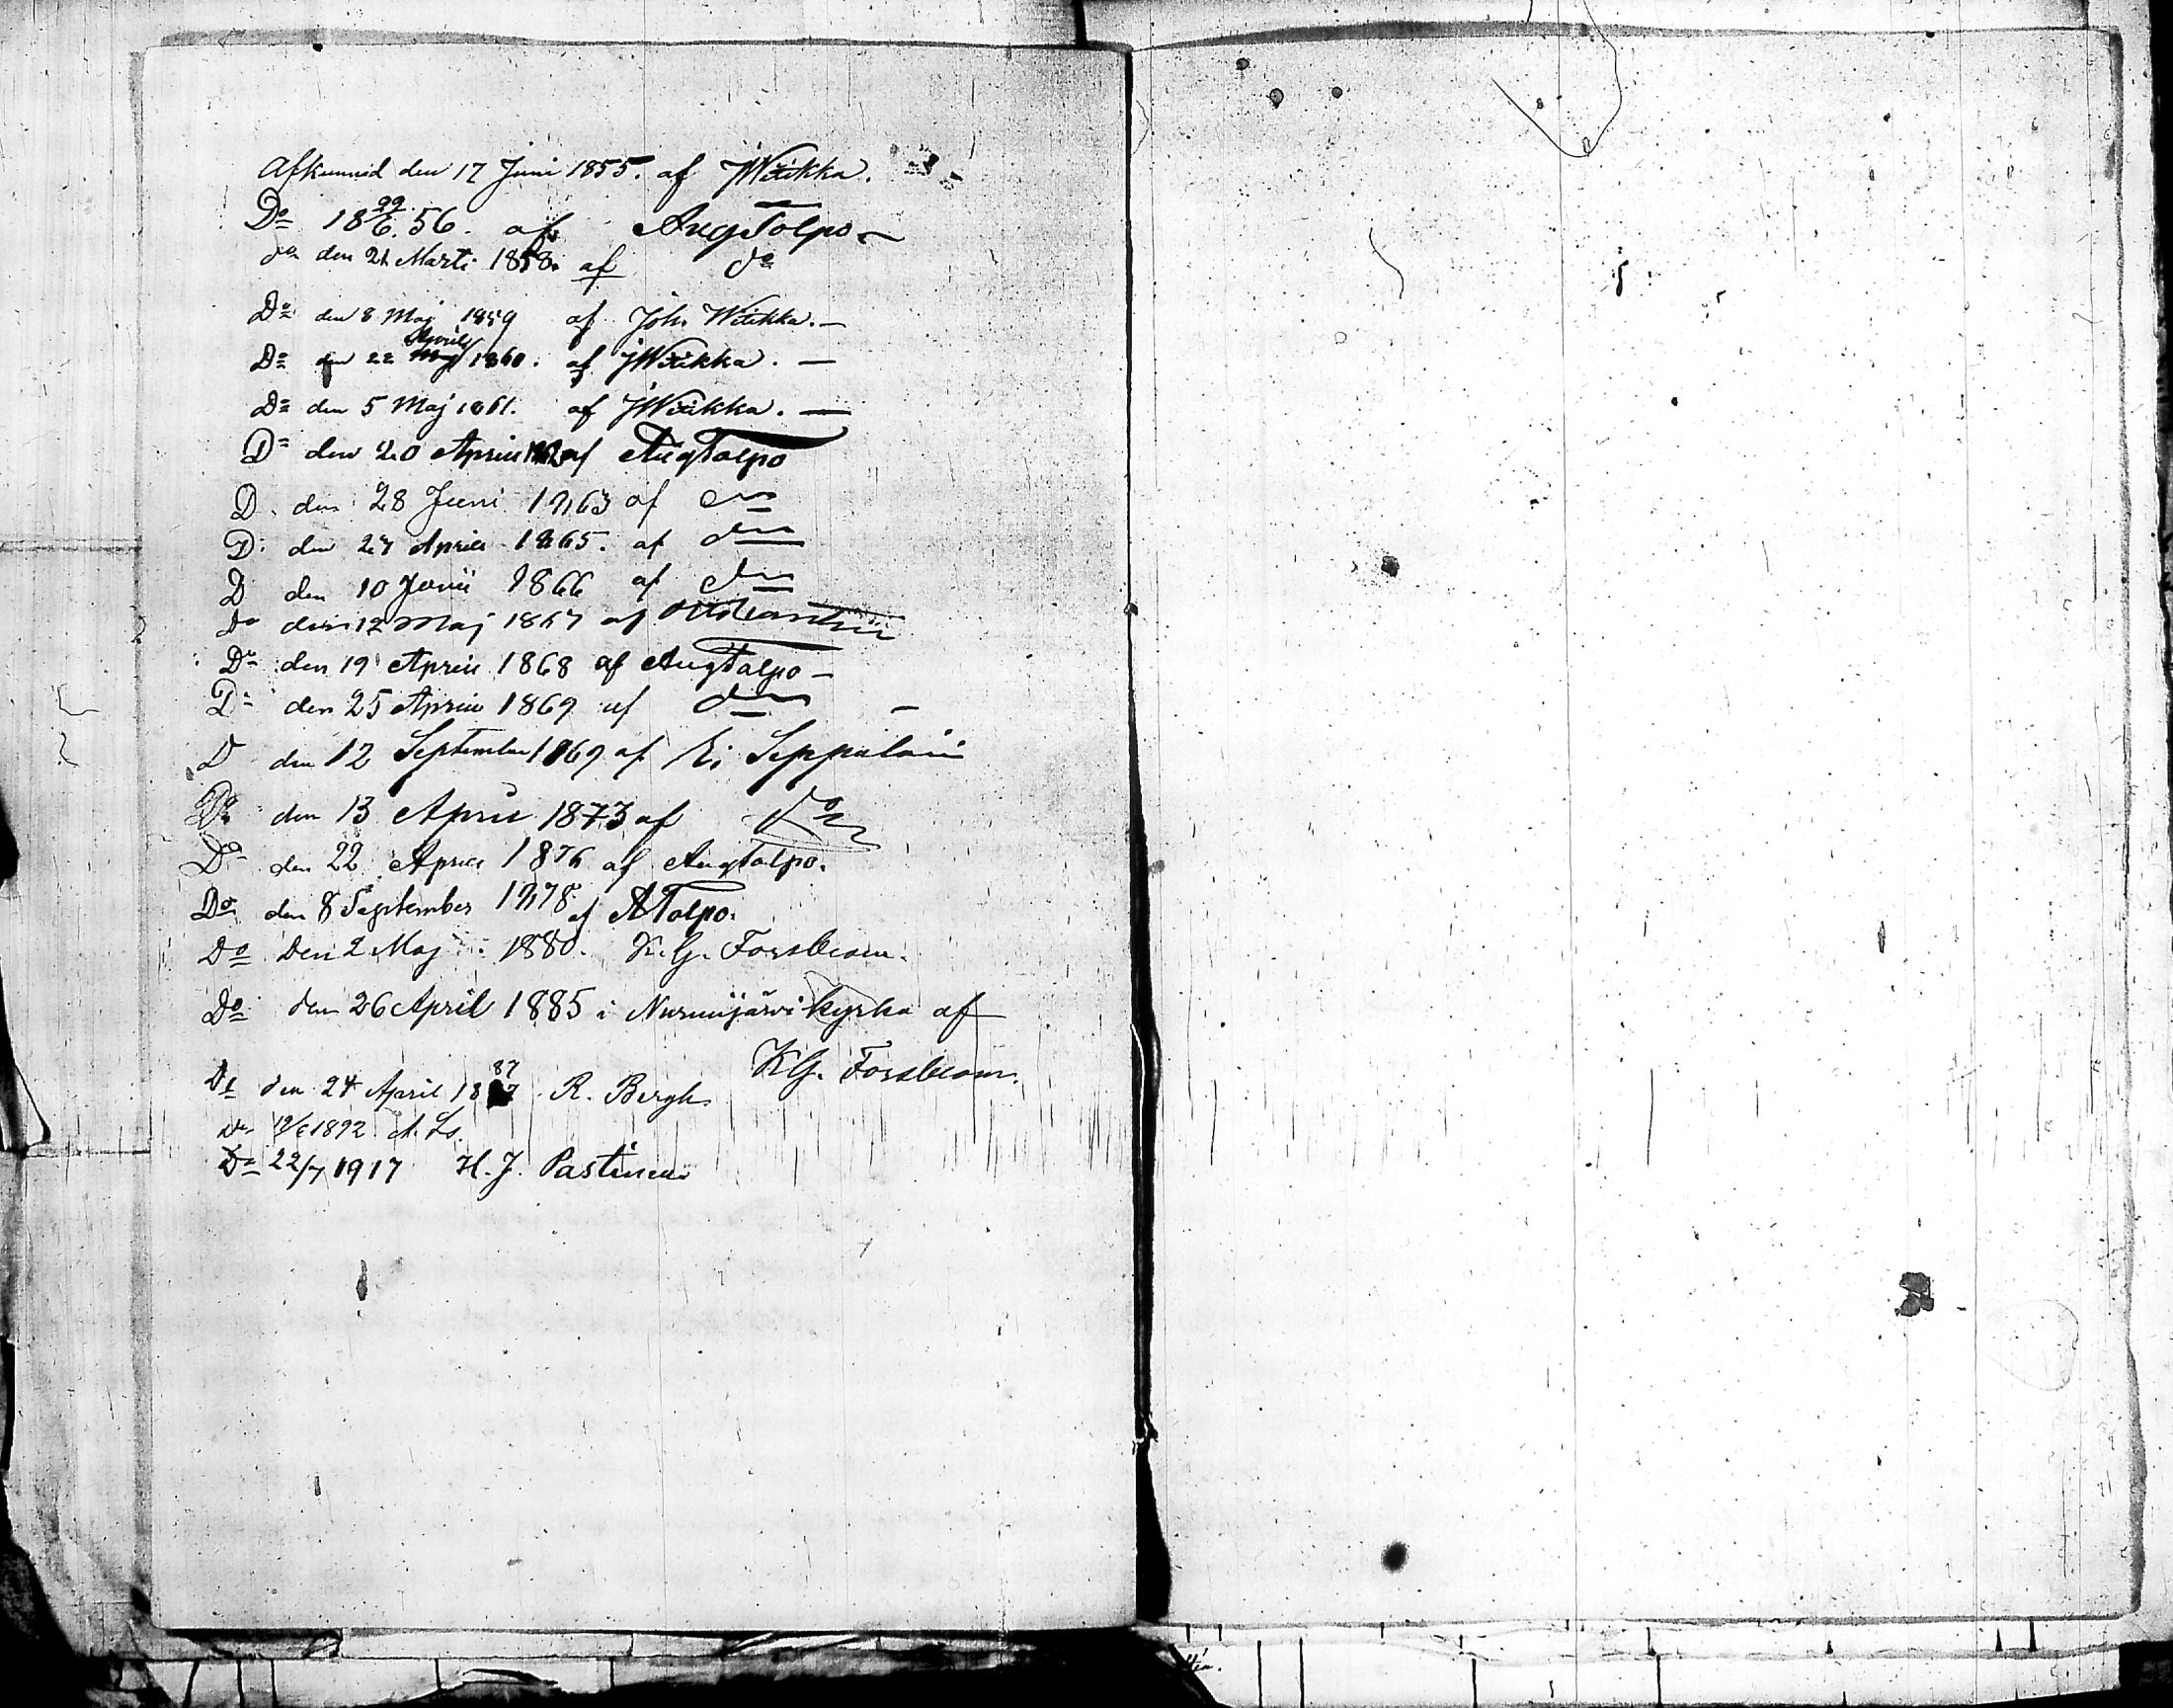 Afkunnid den 17 Juni 1855. af JWitikka.
Do 18 22/6. 56. af AugTolpo
do den 21 Marti 1858. af do
Do den 8 Maj 1859 af Joh. Witikka.
Do den 22 April 1860. af JWitikka.
Do den 5 Maj 1861. af JWitikka.
Do den 20 April 1862 af AugTolpo
D. den 28 Juni 1863 af do
D: den 27 April 1865. af do
D den 10 Junii 1866 af do
Do den 12 Maj 1867 af
Do den 19 April 1868 af AugTolpo
Do den 25 April 1869 af do
D den 12 September 1869 af
Do den 13 April 1873 af do
Do den 22 April 1876 af AugTolpo.
Do den 8 September 1878 af ATolpo.
Do Den 2 Maj 1880. K. G. Forsbom.
Do den 26 April 1885 i Nurmijärvi kyrka af
KG. Forsbom.
Do den 24 April 1887 R. Bergh.
Do 1892
Do 22/7 1917 H. J. Pastinen